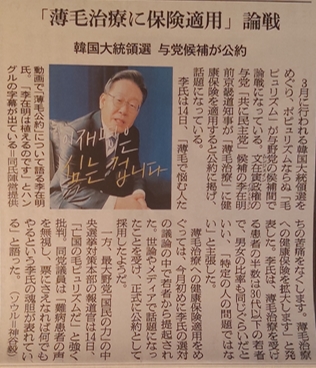 「薄毛治療に保険適用」論戦
韓国大統領選 与党候補が公約
3月に行われる韓国大統領選を
めぐり、ポピュリズムならぬ「毛
ピュリズム」が与野党の候補間で
論戦になっている。文在寅政権の
与党「共に民主党」候補の李在明・
前京畿道知事が「薄毛治療」に健
康保険を適用すると公約に掲げ、
話題になっている。
李氏は14日、「薄毛で悩む人た
재명은
심는 겁니다
動画で「薄毛公約」について語る李在明
氏。「李在明は植えるのです」とハン
グルの字幕が出ている=同氏陣営提供
ちの苦痛をなくします。薄毛治療
への健康保険を拡大します」と発
表した。李氏は、薄毛治療を受け
る患者の半数は30代以下の若者
で、男女の比率も同じぐらいだと
いい、「特定の人の問題ではな
い」と主張した。
薄毛治療への健康保険適用をめ
ぐっては、今月初めに李氏の選対
の議論の中で若者から提起され
た。世論やメディアで話題になっ
たことを受け、正式に公約として
採用したようだ。
一方、最大野党「国民の力」の中
央選挙対策本部の報道官は14日、
「亡国の毛ピュリズムだ」と強く
批判。同党議員は「難病患者の声
を無視し、票に なれば何でも
やるという李氏の魂胆が表れてい
る」と語った。(ソウル=神谷毅)